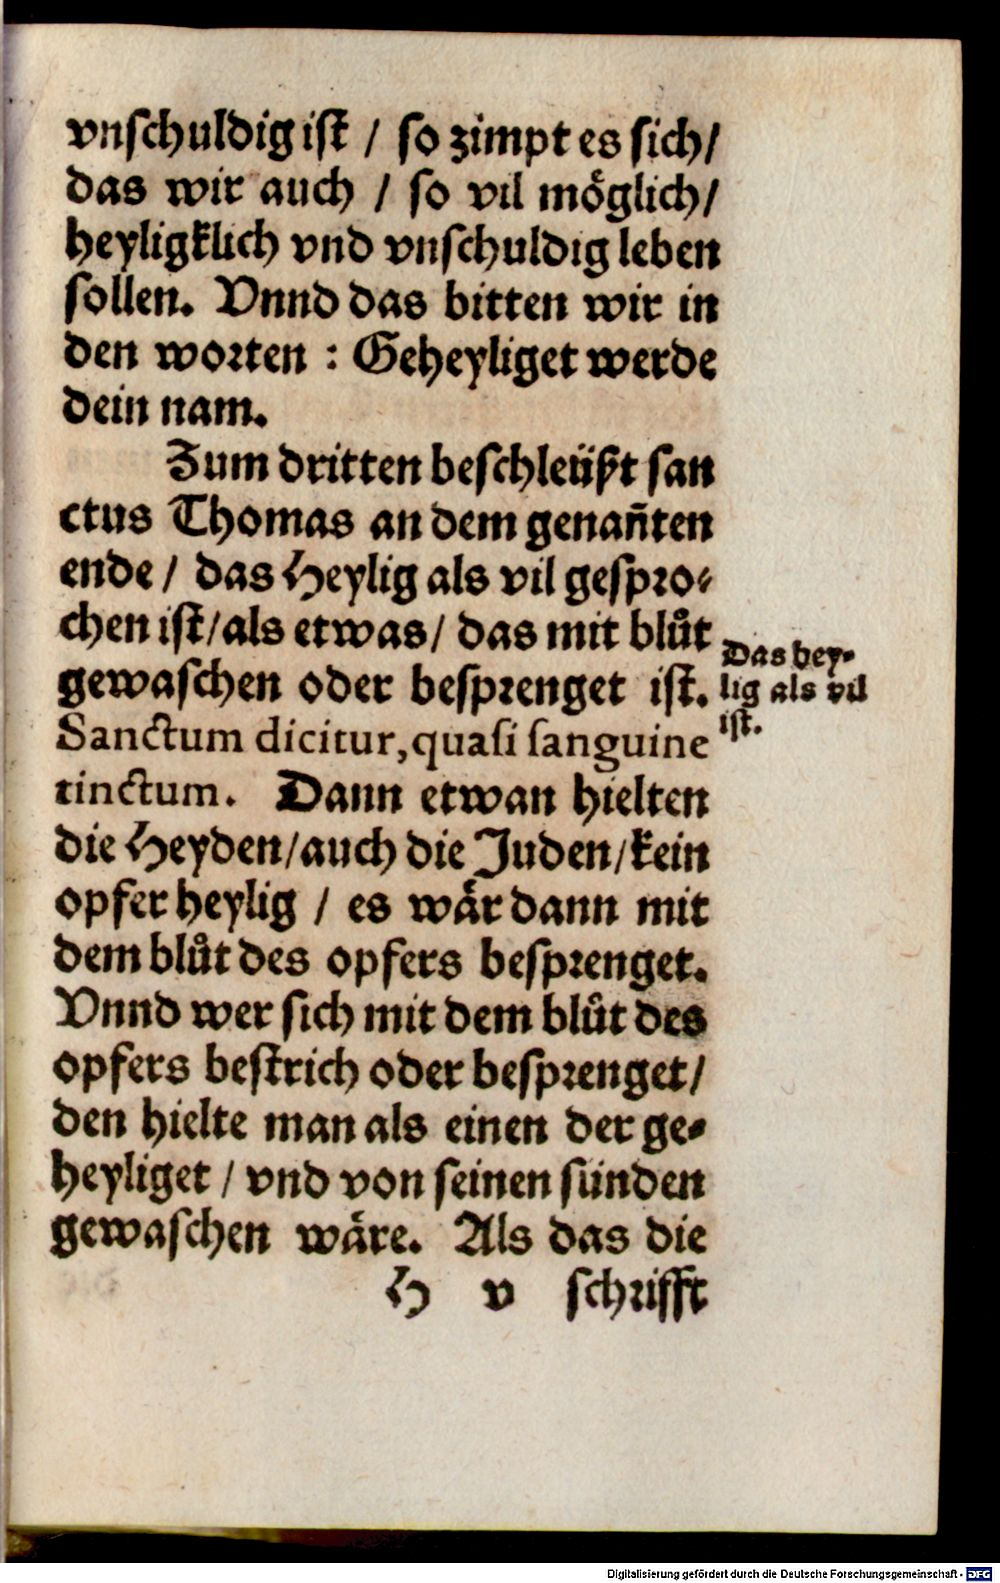 vnschuldig ist / so zimpt es sich/
das wir auch / so vil möglich/
heyligklich vnd vnschuldig leben
sollen. Vnnd das bitten wir in
den worten : Geheyliget werde
dein nam.
Zum dritten beschleüßt san
ctus Thomas an dem genañten
ende / das Heylig als vil gespro-
chen ist/als etwas/ das mit blůt
gewaschen oder besprenget ist.
Das hey-
lig als vil
ist.
Sanctum dicitur, quasi sanguine
tinctum. Dann etwan hielten
die Heyden/auch die Juden/kein
opfer heylig / es wår dann mit
dem blůt des opfers besprenget.
Vnnd wer sich mit dem blůt des
opfers bestrich oder besprenget/
den hielte man als einen der ge-
heyliget / vnd von seinen sünden
gewaschen wåre. Als das die
H v schrifft
Digitalisierung gefördert durch die Deutsche Forschungsgemeinschaft - DFG